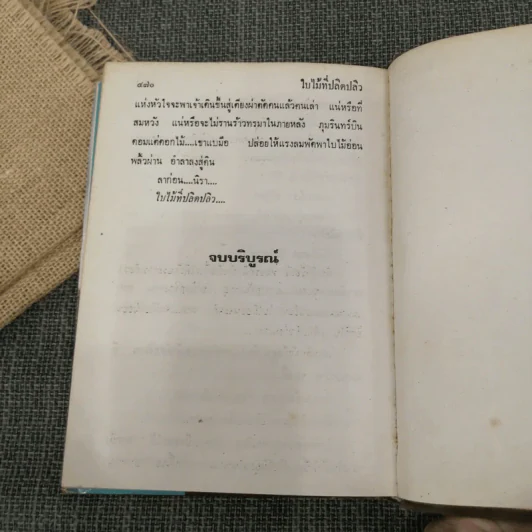 ๔๗๐ ใบไม้ที่ปลิดปลิว
แห่งหัวใจจะพาเจ้าเดินขึ้นสู่เคียงผ่าคัดคนแล้วคนเล่า แน่หรือที่
สมหวัง แน่หรือจะไม่ร้านร้าวทรมาในภายหลัง ภุมรินทร์บิน
ดอมแค่ดอกไม้....เขาแบมือ ปล่อยให้แรงลมพัดพาใบไม้อ่อน
พลิ้วผ่าน อำลาลงสู่ดิน
ลาก่อน....นิรา....
ใบไม้ที่ปลิดปลิว....
จบบริบูรณ์